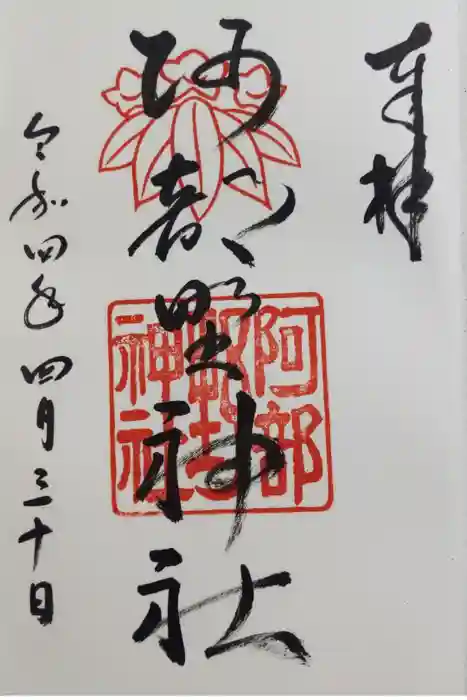 奉拝
阿部野神社
令和四年四月三十日
阿部
神社